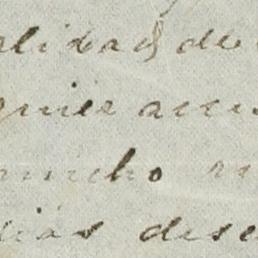 alidad de
quier acu
mucho m
dias dese